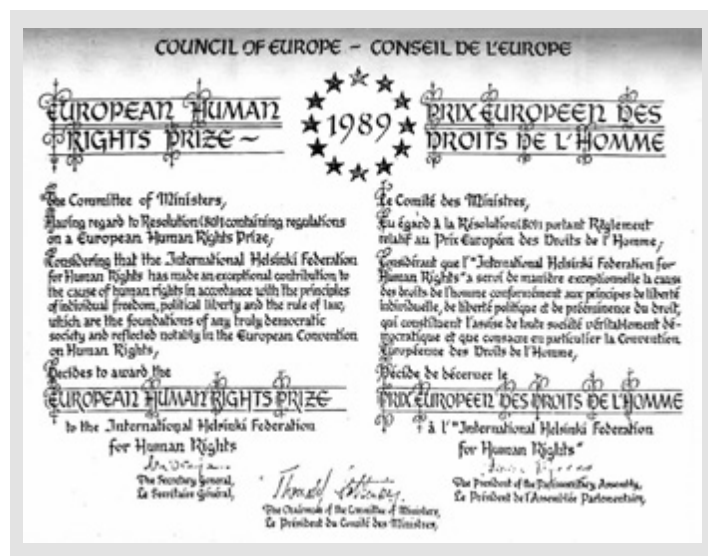 COUNCIL OF EUROPE – CONSEIL DE L'EUROPE
EUROPEAN HUMAN
RIGHTS PRIZE ~
1989
PRIX EUROPEEN DES
DROITS DE L'HOMME
The Committee of Ministers,
Having regard to Resolution (80)1 containing regulations
on a European Human Rights Prize,
Considering that the International Helsinki Federation
for Human Rights has made an exceptional contribution to
the cause of human rights in accordance with the principles
of individual freedom, political liberty and the rule of law,
which are the foundations of any truly democratic
society and reflected notably in the European Convention
on Human Rights,
Decides to award the
EUROPEAN HUMAN RIGHTS PRIZE
to the International Helsinki Federation
for Human Rights
The Secretary General,
Le Secrétaire Général,
Le Comité des Ministres,
Eu égard à la Résolution (80)1 portant Règlement
relatif au Prix Européen des Droits de l'Homme,
Considérant que l'"International Helsinki Federation for
Human Rights" a servi de manière exceptionnelle la cause
des droits de l'homme conformément aux principes de liberté
individuelle, de liberté politique et de prééminence du droit,
qui constituent l'assise de toute société véritablement dé-
mocratique et que consacre en particulier la Convention
Européenne des Droits de l'Homme,
Décide de décerner le
PRIX EUROPEEN DES DROITS DE L'HOMME
à l'"International Helsinki Federation
for Human Rights"
The President of the Parliamentary Assembly,
Le Président de l'Assemblée Parlementaire,
The Chairman of the Committee of Ministers,
Le Président du Comité des Ministres,